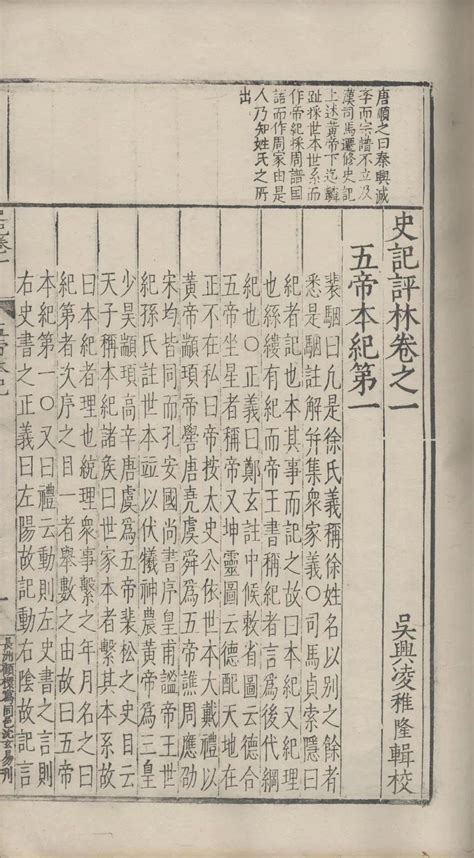 唐順之曰秦興滅
季而宗譜不立及
漢司馬遷修史記
上述黄帝下迄麟
趾採世本世系而
作帝紀採周譜国
語而作周家由是
人乃知姓氏之所
出
史記評林卷之一
吳興凌稚隆輯校
五帝本紀第一
裴駰曰凡是徐氏義稱徐姓名以别之餘者
悉是駰註解并集衆家義○司馬貞索隱曰
紀者記也本其事而記之故曰本紀又紀理
也絲縷有紀而帝王書稱紀者言爲後代綱
紀也○正義曰鄭玄註中候敕省圖云德合
五帝坐星者稱帝又坤靈圖云德配天地在
正不在私曰帝按太史公依世本大戴禮以
黄帝顓頊帝嚳唐堯虞舜爲五帝譙周應劭
宋均皆同而孔安國尚書序皇甫謐帝王世
紀孫氏註世本竝以伏犧神農黄帝爲三皇
少昊顓頊高辛唐虞爲五帝裴松之史目云
天子稱本紀諸侯曰世家本者繫其本系故
曰本紀者理也統理衆事繫之年月名之曰
紀第者次序之目一者舉數之由故曰五帝
本紀第一○又曰禮云動則左史書之言則
右史書之正義曰左陽故記動右陰故記言
長洲顧檖寫同邑沈玄易刊